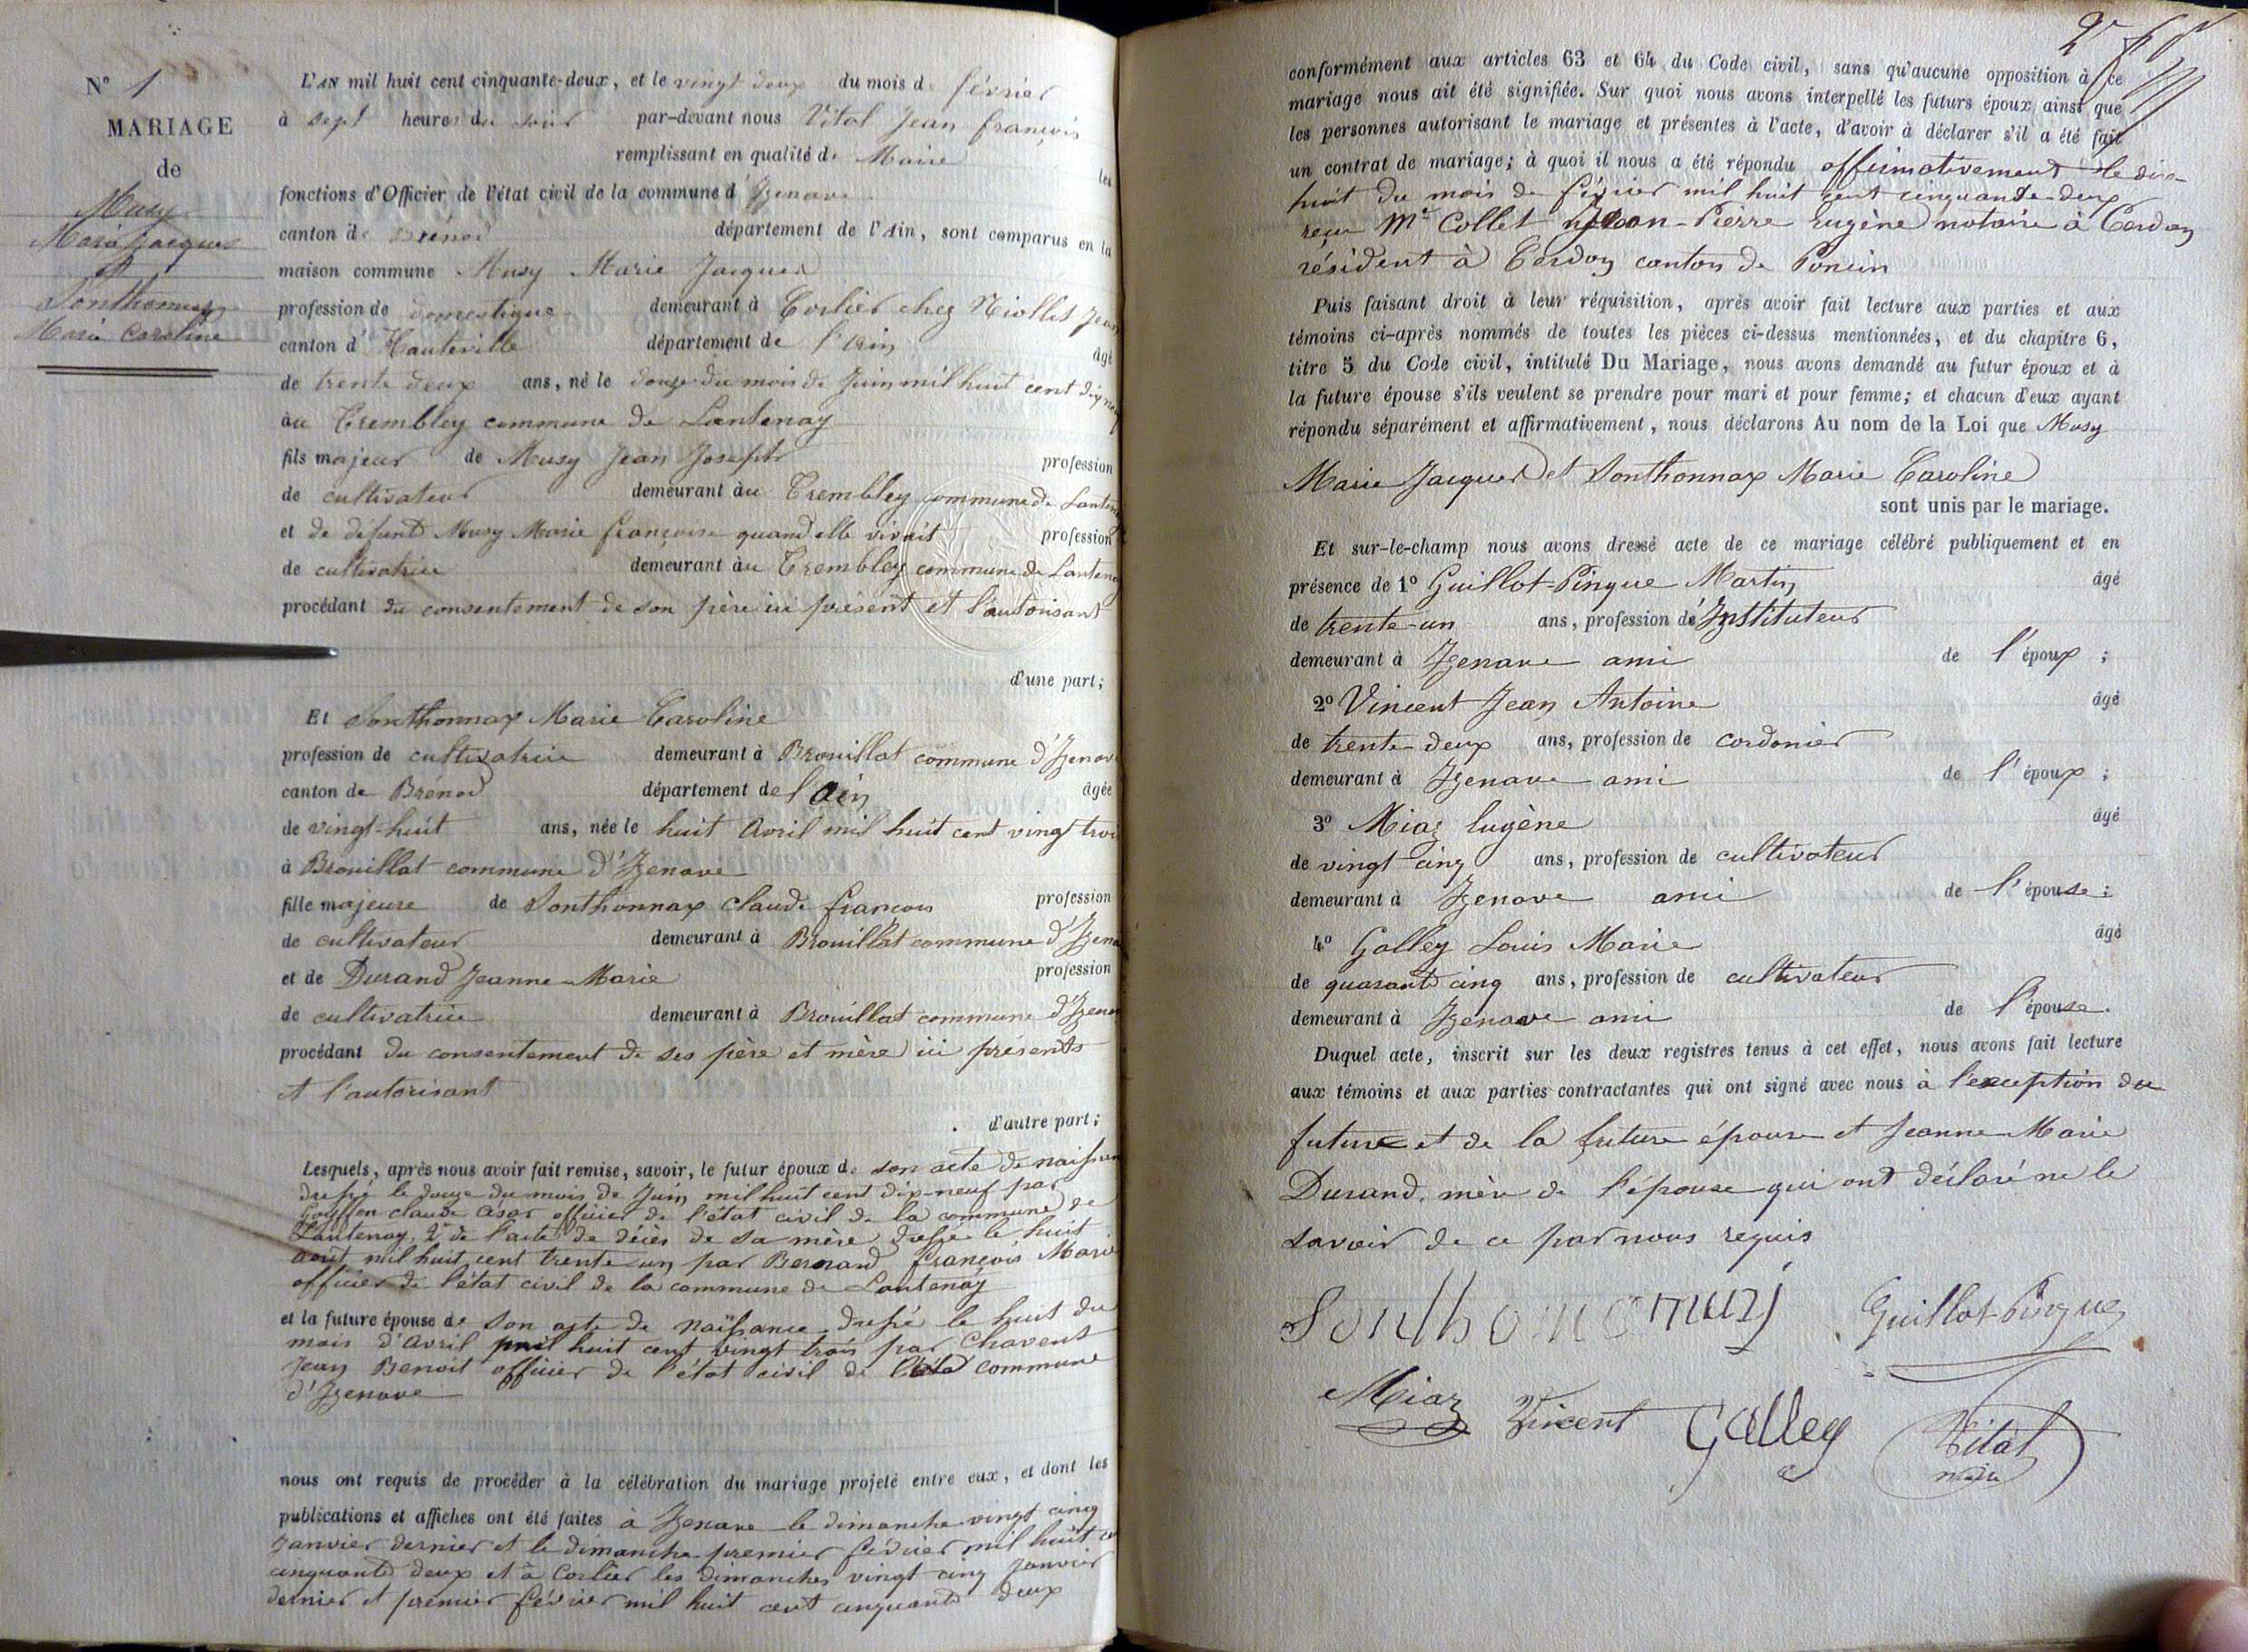 N° 1
MARIAGE
de
Musy
Marie Jacques
et
Sonthonnax
Marie Caroline
L'AN mil huit cent cinquante-deux, et le vingt deux du mois de février
à sept heures du soir par-devant nous Vital Jean françois
remplissant en qualité de Maire les
fonctions d'Officier de l'état civil de la commune d'Izenave
canton de Brénod département de l'Ain, sont comparus en la
maison commune Musy Marie Jacques
profession de domestique demeurant à Corlier chez Niollet Jean
canton d'Hauteville département de l'ain âgé
de trente deux ans, né le douze du mois de Juin mil huit cent dix neuf
au Trembley commune de Lantenay
fils majeur de Musy Jean Joseph profession
de cultivateur demeurant au Trembley commune de Lantenay
et de défunte Musy Marie françoise quand elle vivait profession
de cultivatrice demeurant au Trembley commune de Lantenay
procédant du consentement de son père ici présent et l'autorisant
d'une part;
Et Sonthonnax Marie Caroline
profession de cultivatrice demeurant à Brouillat commune d'Izenave
canton de Brénod département de l'ain âgée
de vingt-huit ans, née le huit avril mil huit cent vingt trois
à Brouillat commune d'Izenave
fille majeure de Sonthonnax claude françois profession
de cultivateur demeurant à Brouillat commune d'Izena
et de Durand Jeanne-Marie profession
de cultivatrice demeurant à Brouillat commune d'Izenav
procédant du consentement de ses père et mère ici présents
et l'autorisant
d'autre part;
Lesquels, après nous avoir fait remise, savoir, le futur époux de son acte de naissan
dressé le douze du mois de Juin mil huit cent dix-neuf par
claude officier de l'état civil de la commune de
Lantenay, 2° de l'acte de décès de sa mère dressé le huit
août mil huit cent trente un par Bernard françois Marie
officier de l'état civil de la commune de Lantenay
et la future épouse de son acte de naissance dressé le huit du
mois d'avril mil huit cent vingt trois par Chavent
Jean Benoit officier de l'état civil de la commune
d'Izenave
nous ont requis de procéder à la célébration du mariage projeté entre eux, et dont les
publications et affiches ont été faites à Izenave le dimanche vingt cinq
Janvier dernier et le dimanche premier février mil huit ce
cinquante deux et à Corlier les dimanches vingt cinq Janvier
dernier et premier février mil huit cent cinquante deux
conformément aux articles 63 et 64 du Code civil, sans qu'aucune opposition à ce
mariage nous ait été signifiée. Sur quoi nous avons interpellé les futurs époux ainsi que
les personnes autorisant le mariage et présentes à l'acte, d'avoir à déclarer s'il a été fait
un contrat de mariage; à quoi il nous a été répondu affirmativement le dix-
huit du mois de février mil huit cent cinquante-deux
reçu Me Collet Jean-Pierre Eugène notaire à Cerdon
résident à Cerdon canton de Poncin
Puis faisant droit à leur réquisition, après avoir fait lecture aux parties et aux
témoins ci-après nommés de toutes les pièces ci-dessus mentionnées, et du chapitre 6,
titre 5 du Code civil, intitulé Du Mariage, nous avons demandé au futur époux et à
la future épouse s'ils veulent se prendre pour mari et pour femme; et chacun d'eux ayant
répondu séparément et affirmativement, nous déclarons Au nom de la Loi que Musy
Marie Jacques et Sonthonnax Marie Caroline
sont unis par le mariage.
Et sur-le-champ nous avons dressé acte de ce mariage célébré publiquement et en
présence de 1° Guillot-Pingue Martin âgé
de trente-un ans, profession d'Instituteur
demeurant à Izenave ami de l'époux;
2° Vincent Jean Antoine âgé
de trente-deux ans, profession de cordonier
demeurant à Izenave ami de l'époux;
3° Miaz Eugène âgé
de vingt-cinq ans, profession de cultivateur
demeurant à Izenave ami de l'épouse;
4° Galley Louis Marie âgé
de quarante cinq ans, profession de cultivateur
demeurant à Izenave ami de l'épouse.
Duquel acte, inscrit sur les deux registres tenus à cet effet, nous avons fait lecture
aux témoins et aux parties contractantes qui ont signé avec nous à l'exception du
future et de la future épouse et Jeanne-Marie
Durand, mère de l'épouse qui ont déclaré ne le
savoir de ce par nous requis
Guillot-Pingue
Miaz Vincent Galley Vital
maire